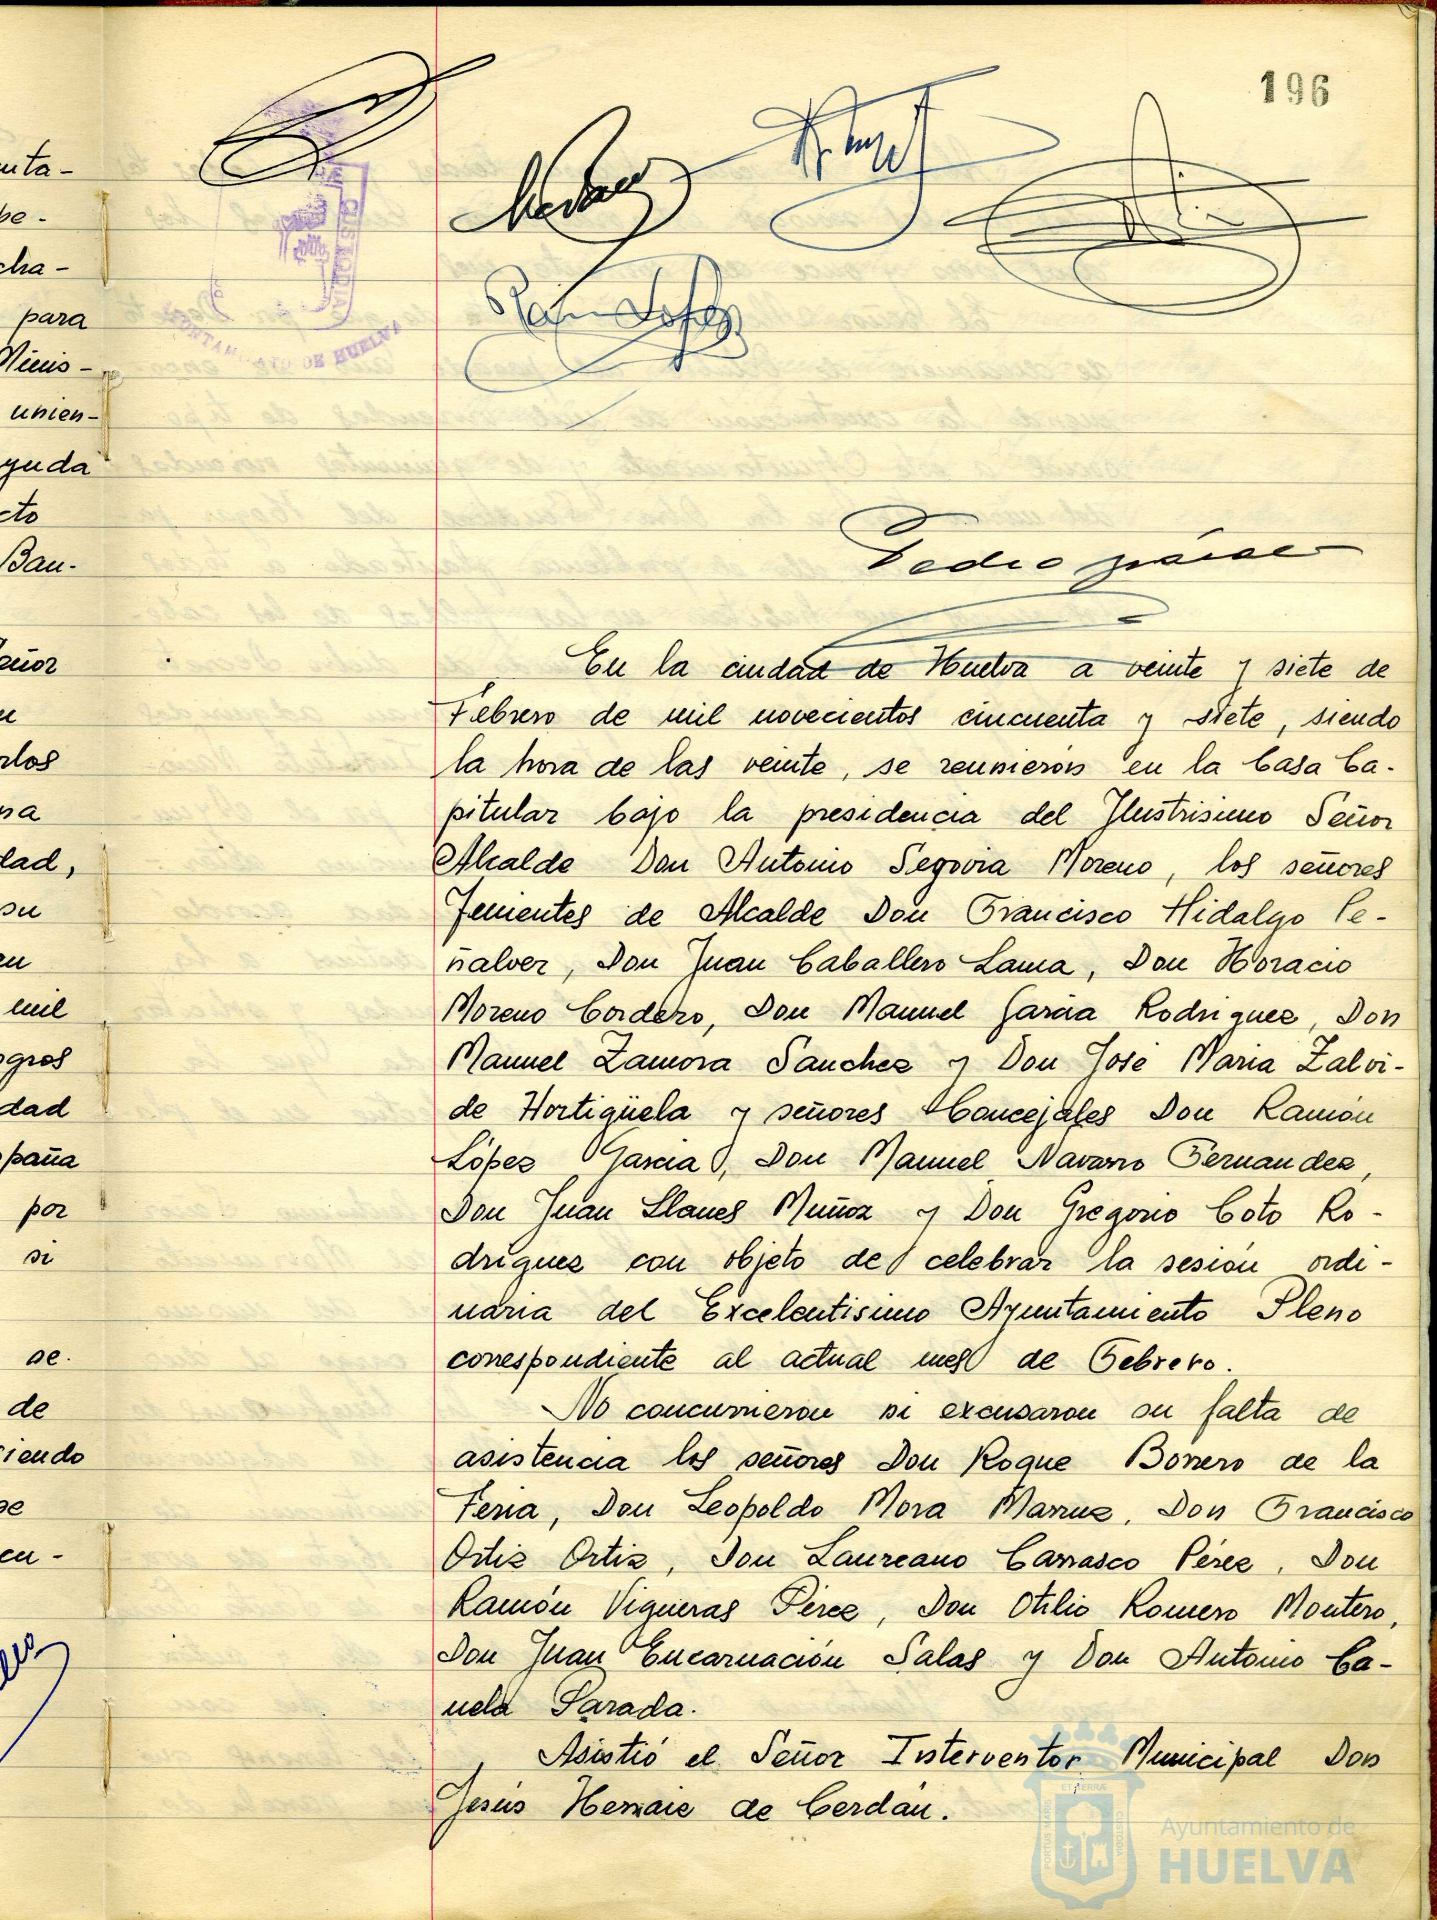 196
Pedro
En la ciudad de Huelva a veinte y siete de
Febrero de mil novecientos cincuenta y siete, siendo
la hora de las veinte, se reunieron en la Casa Ca-
pitular bajo la presidencia del Ilustrisimo Señor
Alcalde Don Antonio Segovia Moreno, los señores
Tenientes de Alcalde Don Francisco Hidalgo Pe-
ñalver, Don Juan Caballero Lama, Don Horacio
Moreno Cordero, Don Manuel Garcia Rodriguez, Don
Manuel Zamora Sanchez y Don José Maria Zalvi-
de Hortigüela y señores Concejales Don Ramón
López Garcia, Don Manuel Navarro Fernandez,
Don Juan Llanes Muñoz y Don Gregorio Coto Ro-
driguez con objeto de celebrar la sesión ordi-
naria del Excelentisimo Ayuntamiento Pleno
correspondiente al actual mes de Febrero.
No concurrieron ni excusaron su falta de
asistencia los señores Don Roque Borrero de la
Feria, Don Leopoldo Mora Marruz, Don Francisco
Ortiz Ortiz, Don Laureano Carrasco Pérez, Don
Ramón Vigueras Pérez, Don Otilio Romero Montero,
Don Juan Encarnación Salas y Don Antonio Ca-
nela Parada.
Asistió el Señor Interventor Municipal Don
Jesús de Cerdán.
Ayuntamiento de
HUELVA
para
unien-
yuda
cto
Ban-
dad,
su
mil
dad
por
si
se.
de